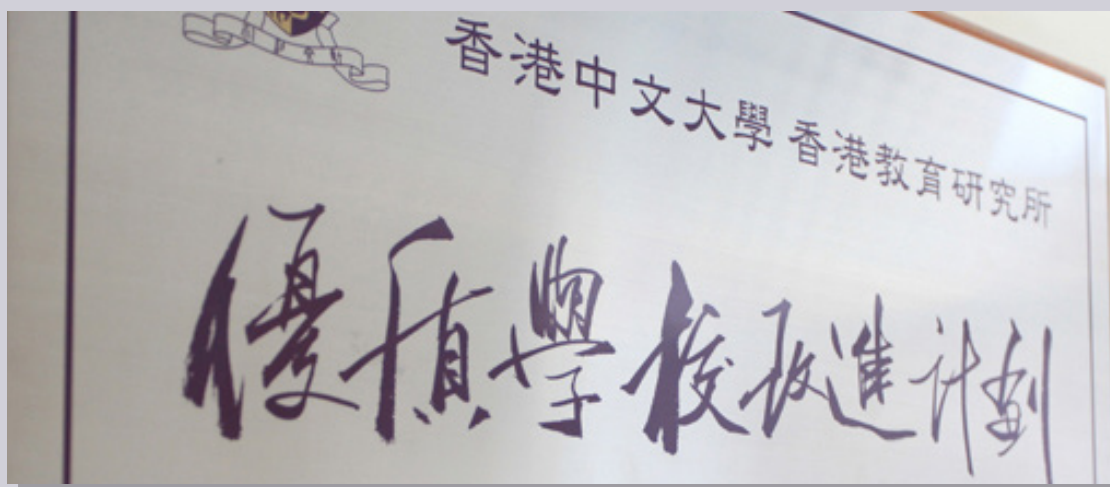 香港中文大學 香港教育研究所
優質學校改進計劃